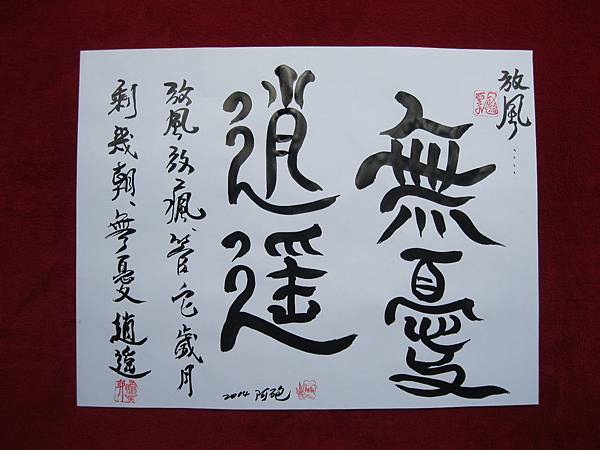 放風.....
無憂
逍遙
放風放瘋、管它歲月
剩幾朝、無憂逍遙
2014 阿砲